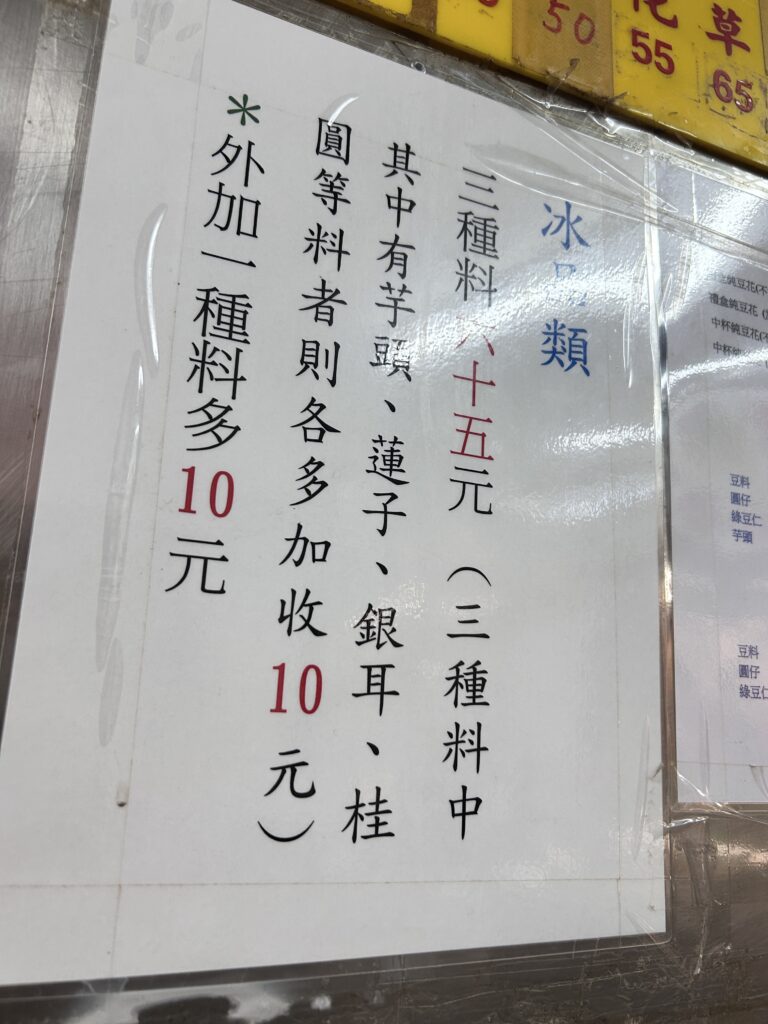 50
花
55
草
65
冰品類
三種料六十五元（三種料中
其中有芋頭、蓮子、銀耳、桂
圓等料者則各多加收10元）
*外加一種料多10元
純豆花(不
禮盒純豆花
中杯純豆花(
中杯純
豆料
圓仔
綠豆仁
芋頭
豆料
圓仔
綠豆仁